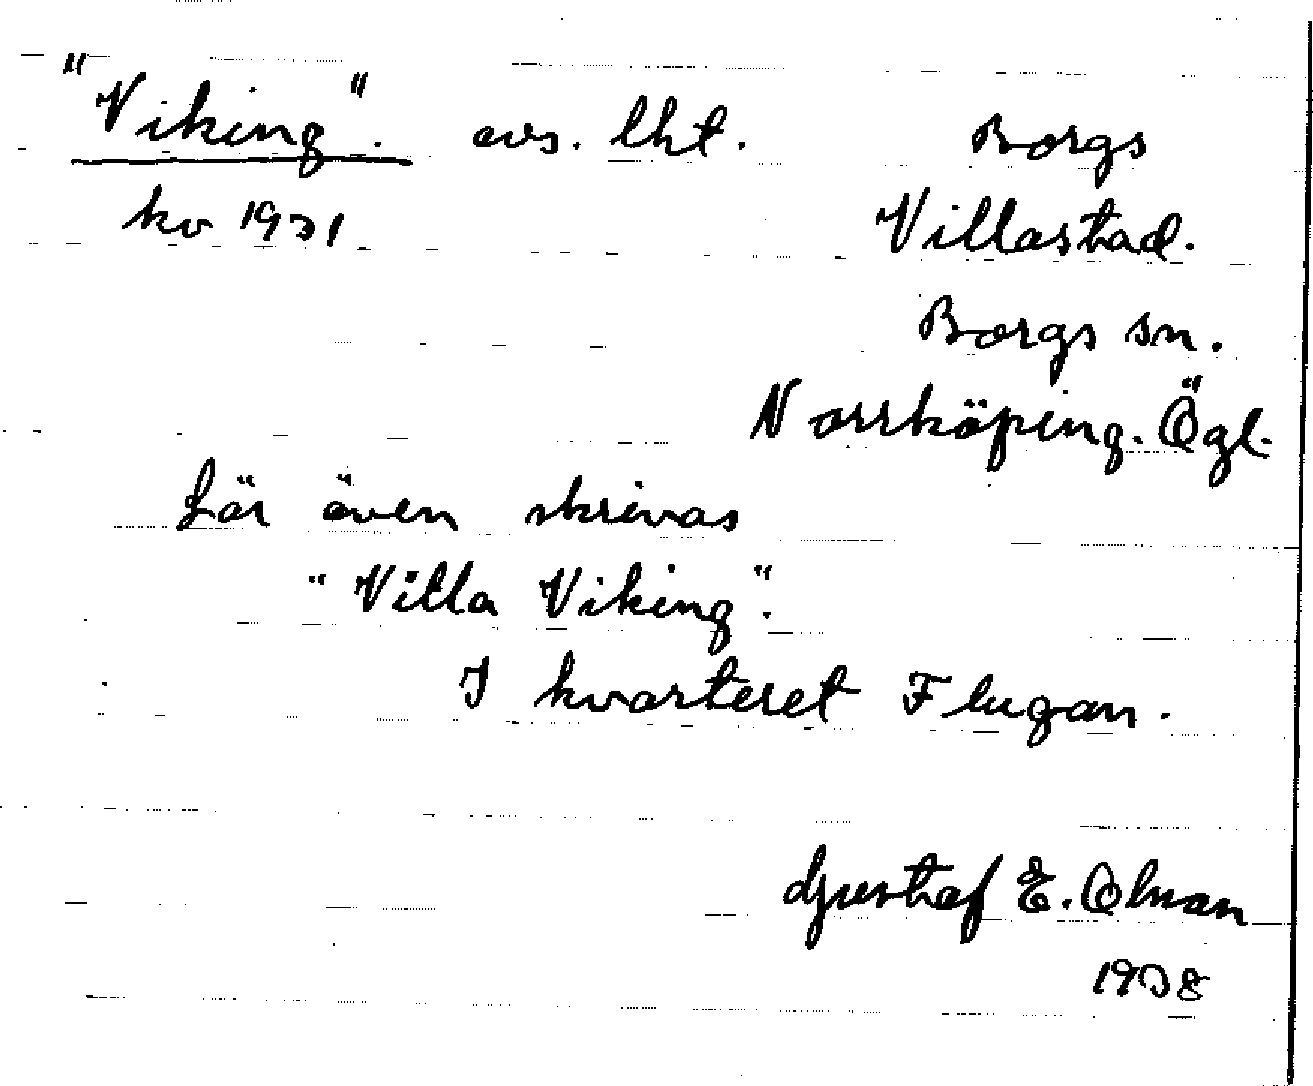 "Viking". avs. lht. Borgs
kv 1931 Villastad.
Borgs sn.
Norrköping. Ögl.
Lär även skrivas
"Villa Viking".
I kvarteret Flugan.
Gustaf E. Olman
1938